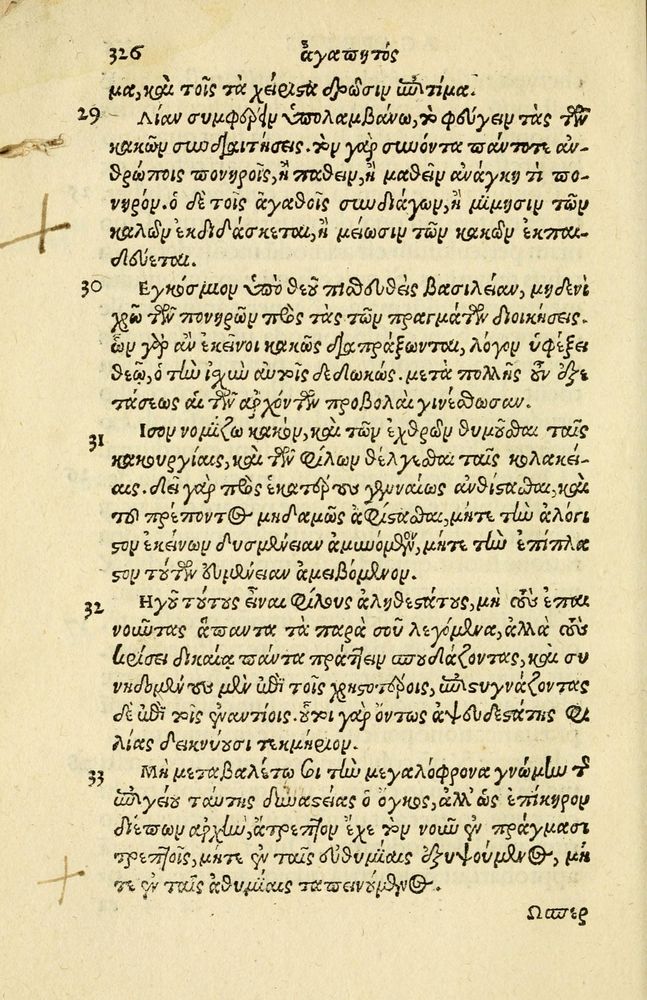 326 ἀγαπητός
μα, καὶ τοῖς τὰ χείριστα δρῶσιν ἐπίτιμα.
29 Λίαν συμφέρειν ὑπολαμβάνω, τὸ φεύγειν τὰς τῶν
κακῶν συνδιαιτήσεις. τὸν γὰρ συνόντα πάντοτε ἀν-
θρώποις πονηροῖς, ἢ παθεῖν, ἢ μαθεῖν ἀνάγκη τὶ πο-
νηρόν. ὁ δὲ τοῖς ἀγαθοῖς συνδιάγων, ἢ μίμησιν τῶν
καλῶν ἐκδιδάσκεται, ἢ μείωσιν τῶν κακῶν ἐκπαι-
δεύεται.
30 Εγκόσμιον ὑπὸ θεοῦ πιστευθεὶς βασιλείαν, μηδενὶ
χρῶ τῶν πονηρῶν πρὸς τὰς τῶν πραγμάτων διοικήσεις.
ὧν γὰρ ἂν ἐκεῖνοι κακῶς διαπράξωνται, λόγον ὑφέξει
θεῷ, ὁ τὴν ἰχὺν αὐτοῖς δεδωκώς. μετὰ πολλῆς οὖν ἐξε
τάσεως αἱ τῶν ἀρχόντων προβολαὶ γινέσθωσαν.
31 Ισον νομίζω κακὸν, καὶ τῶν ἐχθρῶν θυμοῦσθαι ταῖς
κακουργίαις, καὶ τῶν φίλων θέλγεσθαι ταῖς κολακεί-
αις. δεῖ γὰρ πρὸς ἑκατέρους γενναίως ἀνθίστασθαι, καὶ
τοῦ πρέποντος μηδαμῶς ἀφίστασθαι, μήτε τὴν ἀλόγι
στον ἐκείνων δυσμένειαν ἀμυνόμενον, μήτε τὴν ἐπίπλα
στον τούτων εὐμένειαν ἀμειβόμενον.
32 Ηγοῦ τούτους εἶναι φίλους ἀληθεστάτους, μὴ τοὺς ἐπαι
νοῦντας ἅπαντα τὰ παρὰ σοῦ λεγόμενα, ἀλλὰ τοὺς
κρίσει δικαίᾳ πάντα πράττειν σπουδάζοντας, καὶ συ
νηδομένους μὲν ἐπὶ τοῖς χρηστοτέροις, ἐπιστυγνάζοντας
δὲ ἐπὶ τοῖς ἐναντίοις. οὗτοι γὰρ ὄντως ἀψευδεστάτης φι
λίας δεικνύουσι τεκμήριον.
33 Μὴ μεταβαλέτω σοι τὴν μεγαλόφρονα γνώμην τῆς
ἐπιγείου ταύτης δυναστείας ὁ ὄγκος, ἀλλ' ὡς ἐπίκηρον
διέπων ἀρχὴν, ἄτρεπτον ἔχε τὸν νοῦν ἐν πράγμασι
τρεπτοῖς, μήτε ἐν ταῖς εὐθυμίαις ἐξυψούμενος, μή
τε ἐν ταῖς ἀθυμίαις ταπεινούμενος.
Ωσπερ